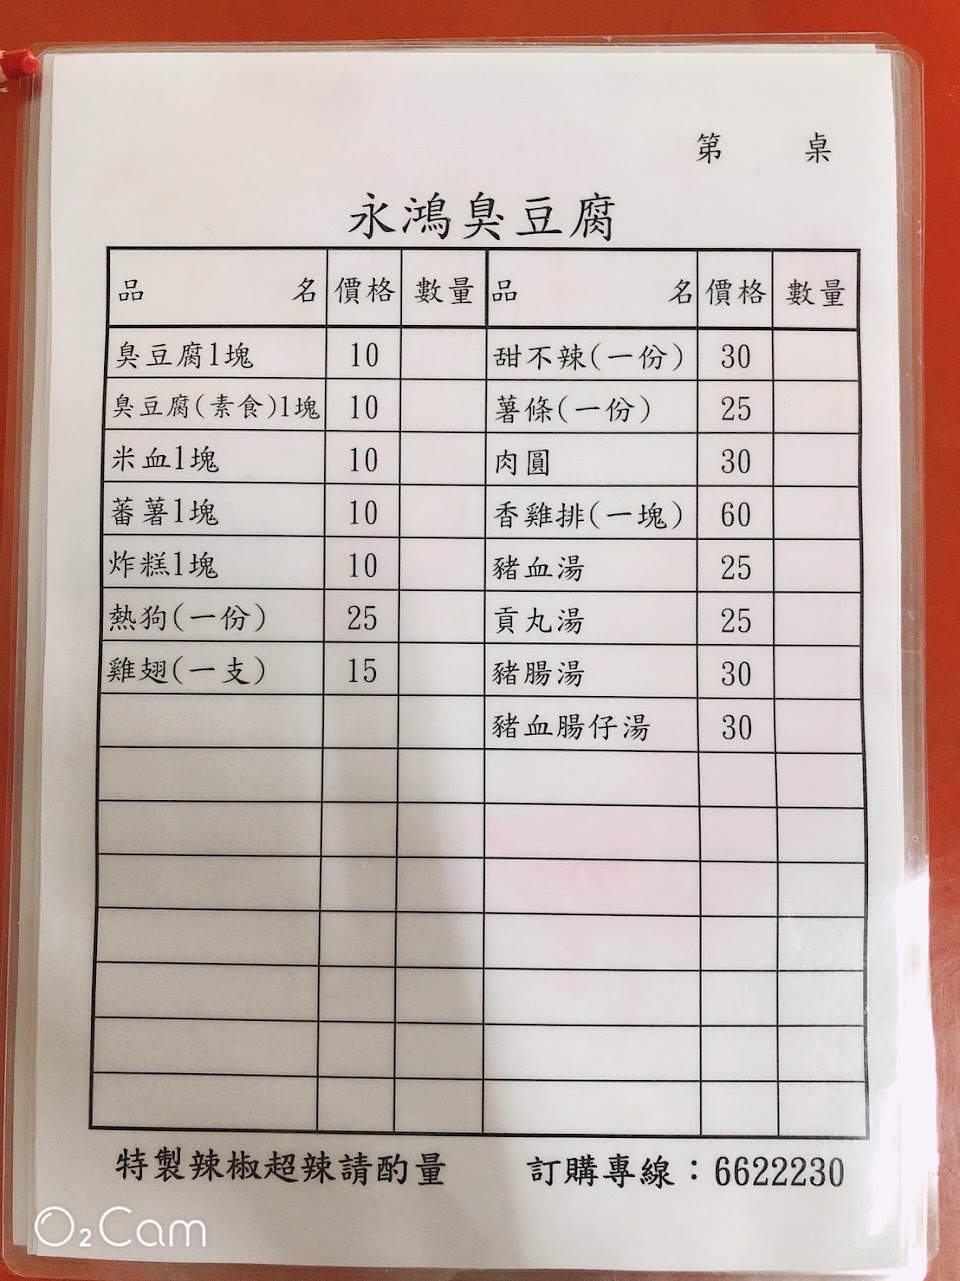 第 桌
永鴻臭豆腐
品 名 價格 數量 品 名 價格 數量
臭豆腐1塊 10 甜不辣(一份) 30
臭豆腐(素食)1塊 10 薯條(一份) 25
米血1塊 10 肉圓 30
蕃薯1塊 10 香雞排(一塊) 60
炸糕1塊 10 豬血湯 25
熱狗(一份) 25 貢丸湯 25
雞翅(一支) 15 豬腸湯 30
豬血腸仔湯 30
特製辣椒超辣請酌量 訂購專線：6622230
O2Cam